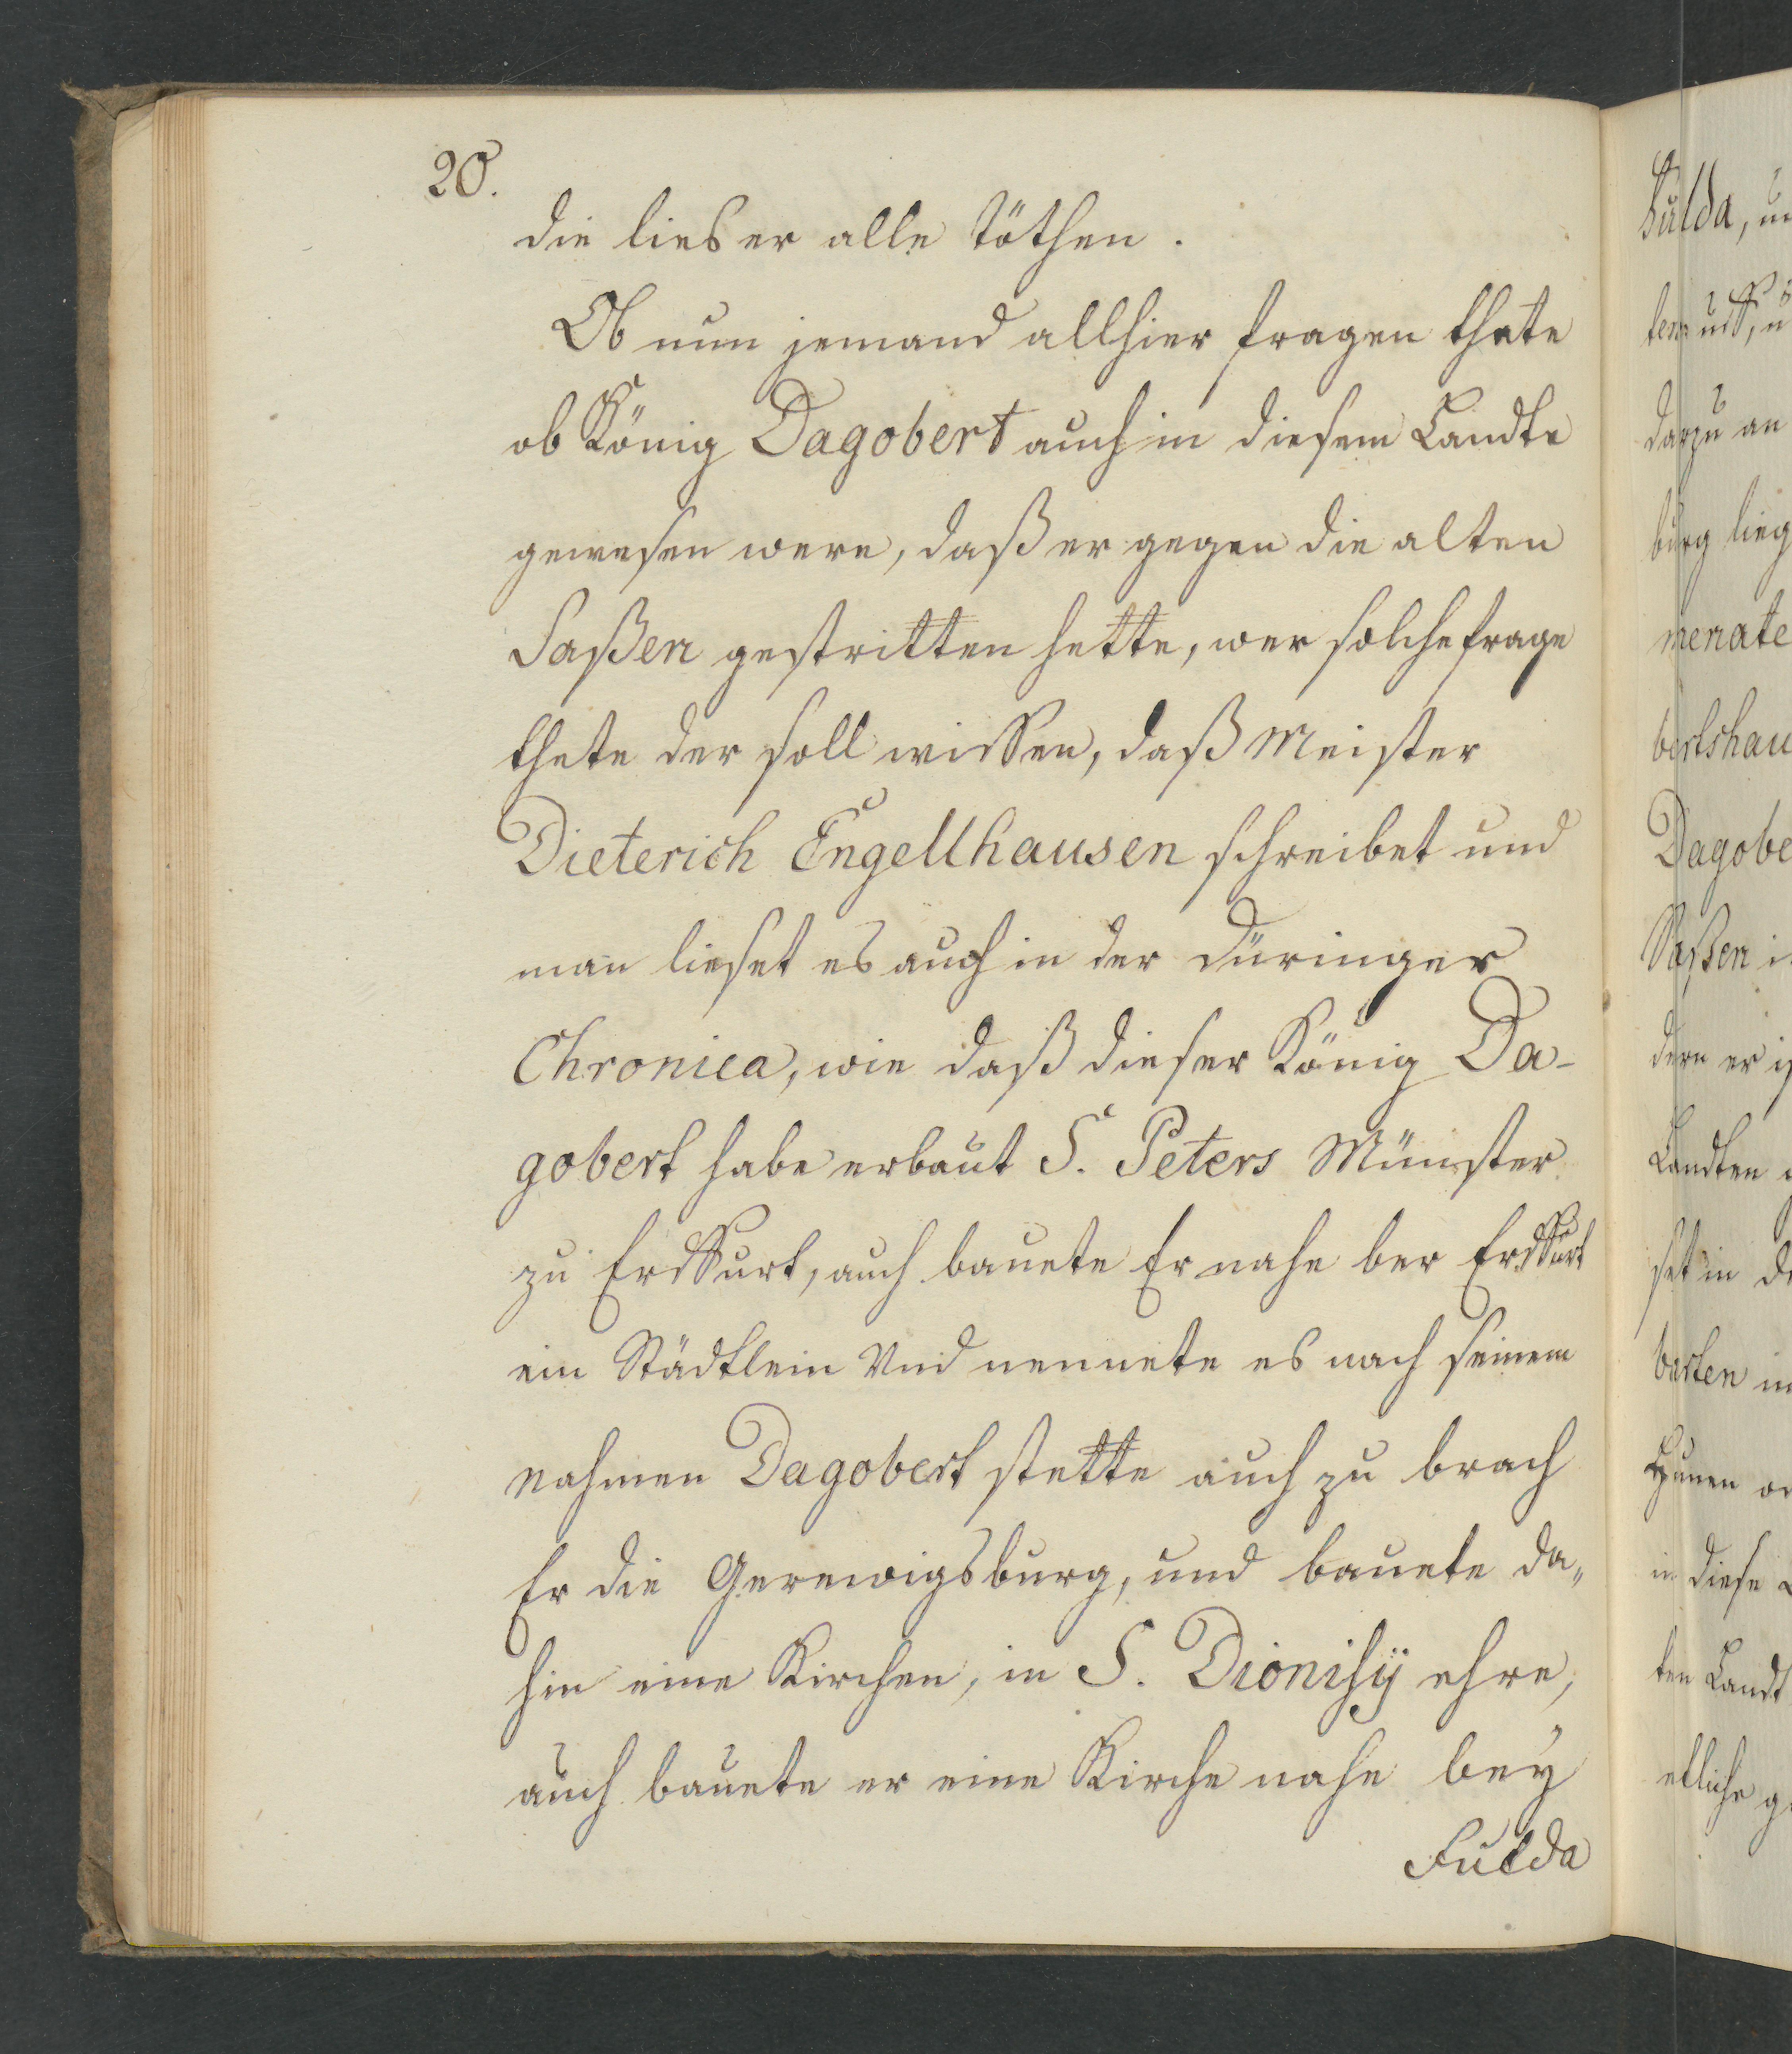 20.
die lies er alle töthen.
Ob nun jemand allhier fragen thete
ob König Dagobert auch in diesem Landte
gewesen were, daß er gegen die alten
Saßen gestritten hette, wer solche frage
thete der soll wissen, daß Meister
Dieterich Engellhausen schreibet und
man lieset es auch in der düringer
Chronica, wie daß dieser König Da-
gobert habe erbaut S. Peters Münster
zu Erdffurt, auch bauete Er nahe ber Erdffurt
ein Städtlein Vnd nennete es nach seinem
nahmen Dagobert stette auch zu brach
Er die Gerewigsburg, und bauete da„
hin eine Kirchen, in S. Dionisÿ ehre,
auch bauete er eine Kirche nahe beÿ
Fulda
Fulda,
darzu an
burg lieg
menate
bertshau
Dagobe
Saßen i
dern er is
Landten
set in de
berten in
Hunen
in diese
ten Landt
etliche g